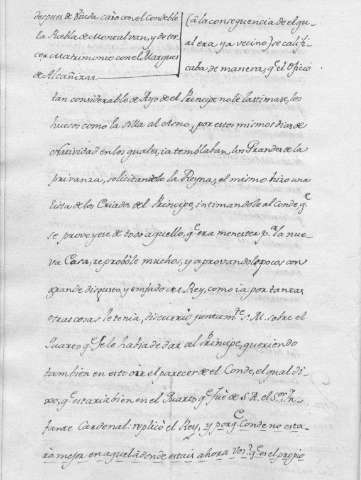 despues de Viuda, casò con el Conde de
la Puebla de Montalvan, y de ter-
cer Matrimonio con el Marques
de Alcañizas.
(à la consequencia de el qu-
al era, ya vecino) se califi-
caba de manera, q.e el Oficio
tan considerable de Ayo de el Principe no le lastimase, los
huesos como la silla al otono, por estos mismos dias de
Natividad en los quales, ia temblaban, los Grandes de la
privanza, solicitandolo la Reyna, el mismo hizo una
lista de los Criados del Principe, intimandole al Conde q.e
se proveyese de todo aquello, q.e era menester p.a la nue-
va Casa, reprobòle muchos, y aprovandole pocos con
grande disgusto, y enfado de el Rey, como ia por tantas
otras cosas le tenia, discurriò juntam.te S. M. sobre el
Quarto q.e se le habia de dar al Principe, queriendo
tambien en esto oir el parecer de el Conde, el qual di-
xo, q.e estaria bien en el Quarto q.e fuè de S. A. el S.or In-
fante Cardenal: replicò el Rey, y porq.e Conde no esta-
rà mejor en aquel à donde estais ahora Vos? q.e es el propio